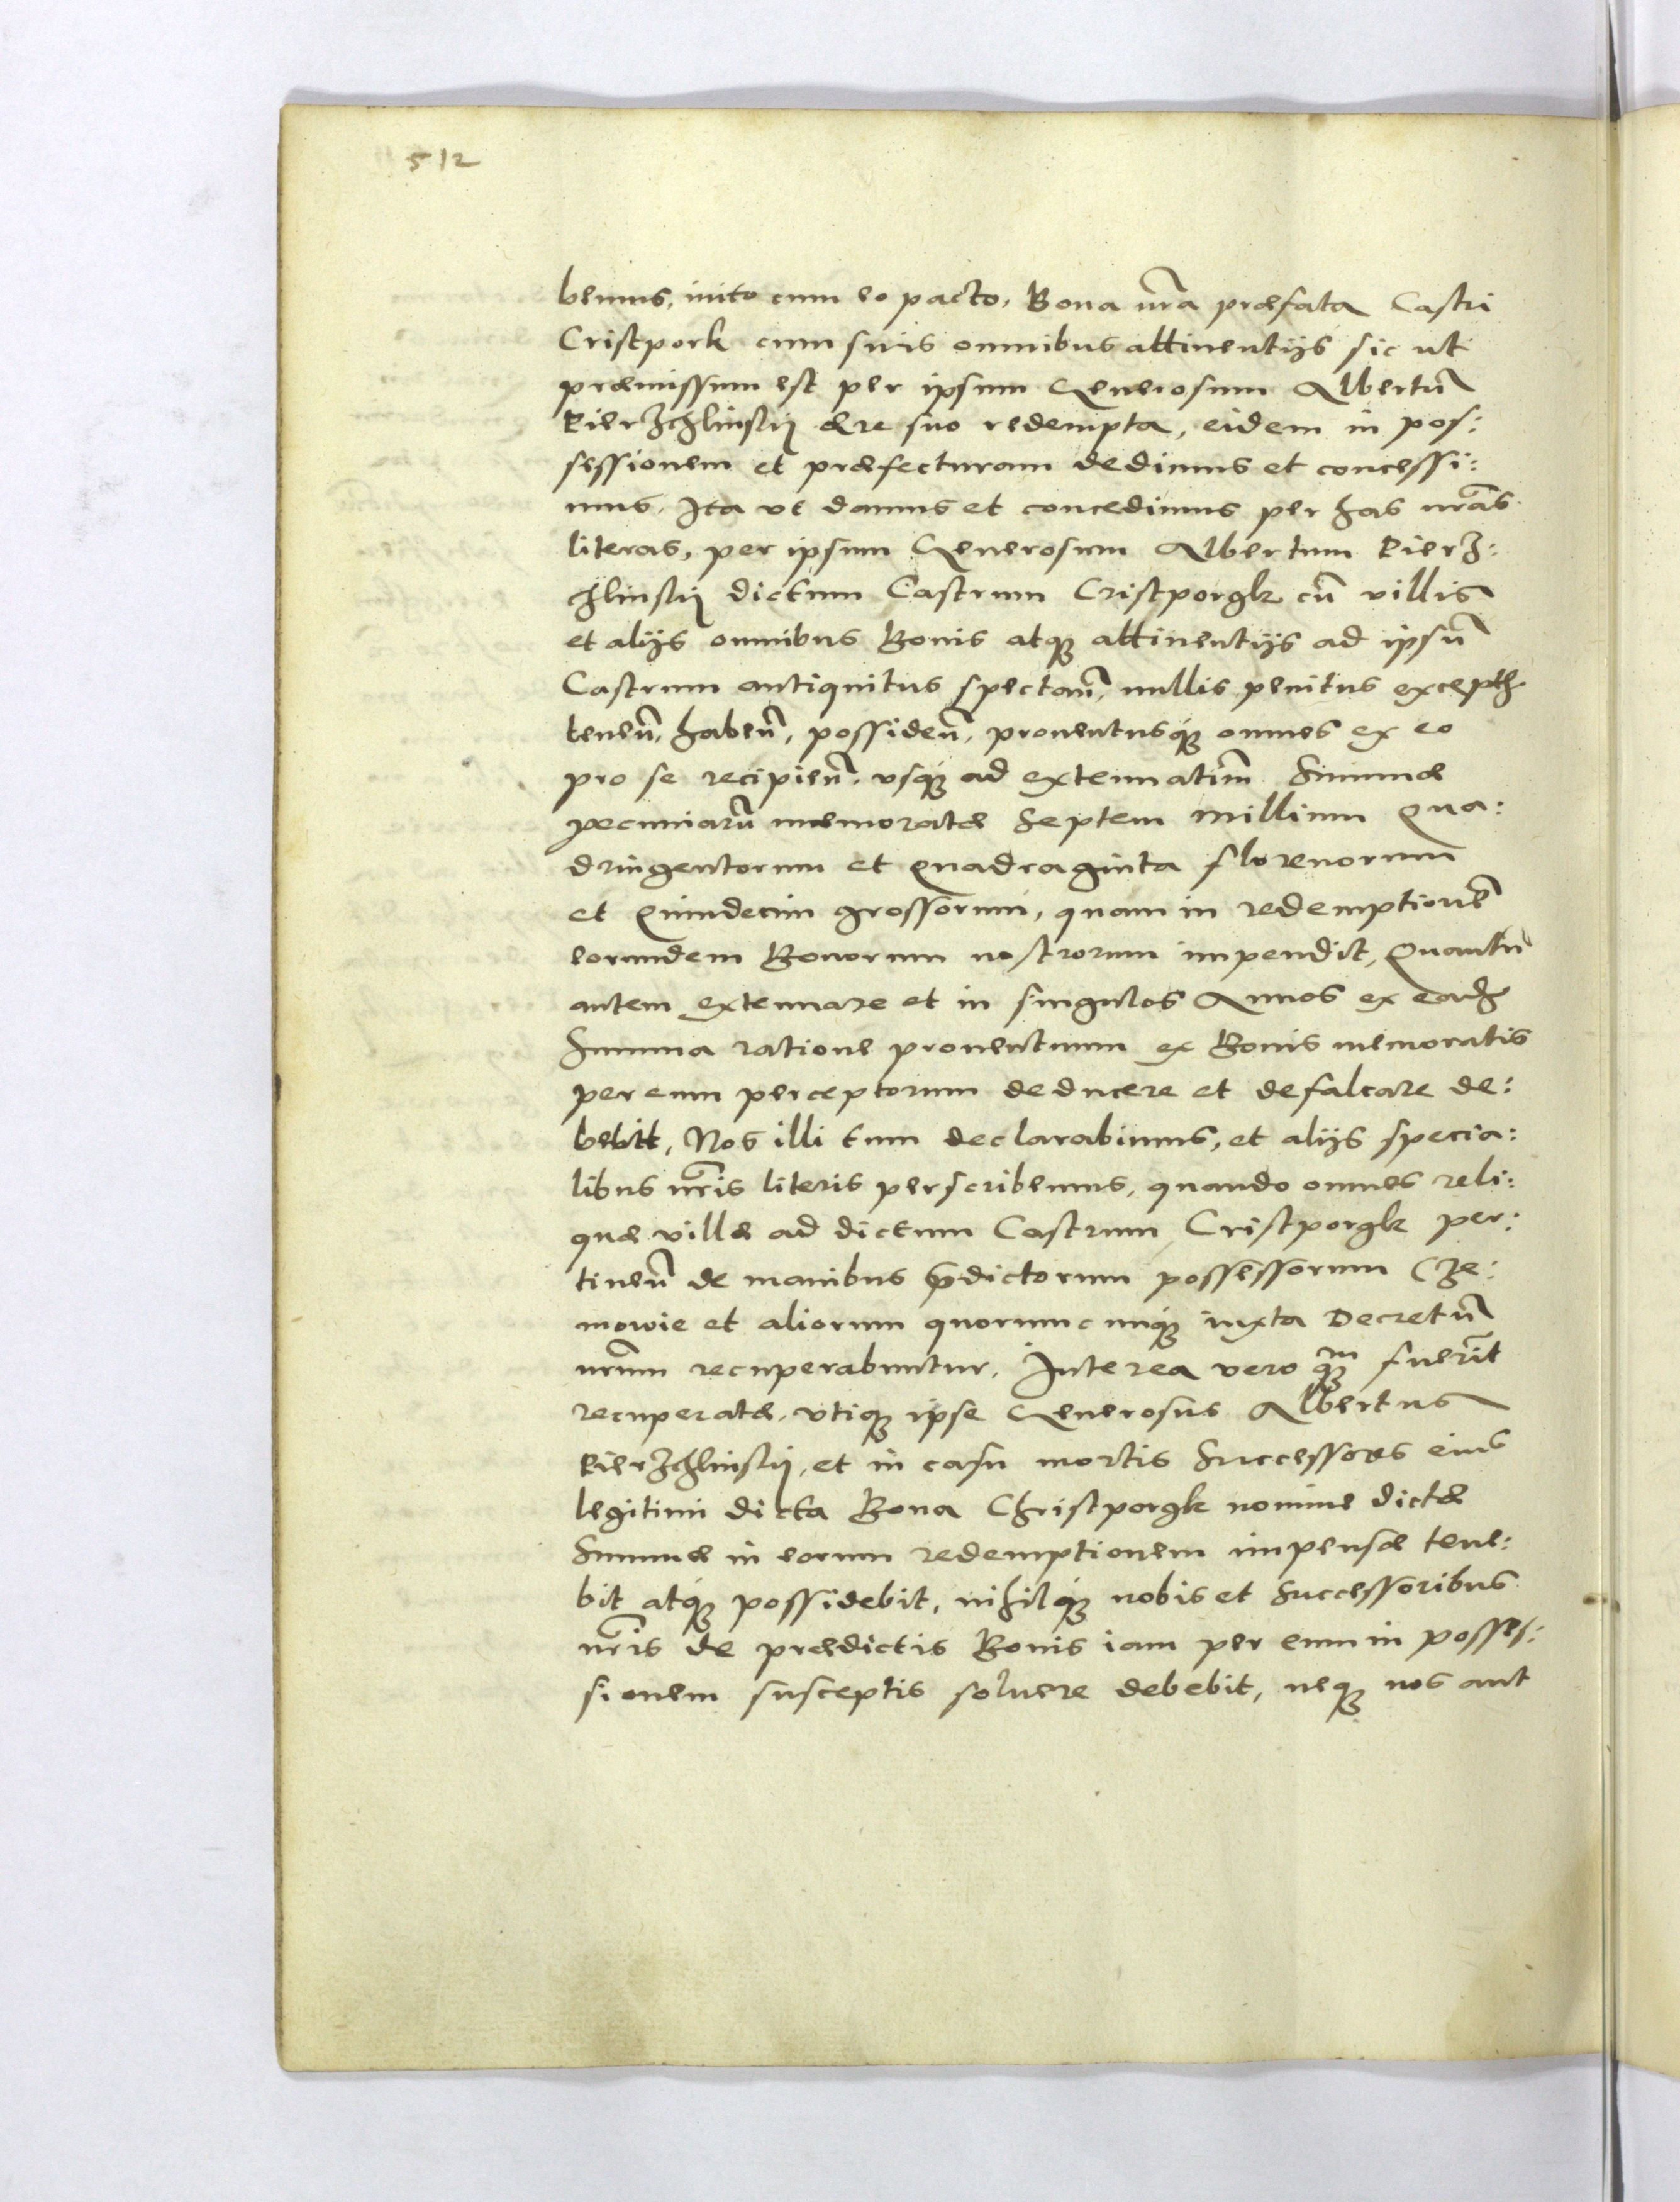 512
bemus, inito cum eo pacto, Bona nr̃a præfata Castri
Cristpork cum suis omnibus attinentijs sic ut
præmissum est per ipsum Generosum Albertũ
Pierzchlinskij ære suo redempta, eidem in pos:
sessionem et præfecturam dedimus et concessi:
mus. Ita vt damus et concedimus per has nr̃as
literas, per ipsum Generosum Albertum Pierz:
chlinskij dictum Castrum Cristporgk cũ villis
et alijs omnibus Bonis atq attinentijs ad ipsũ
Castrum antiquitus spectañ, nullis penitus except
teneñ, habeñ, possideñ, prouentusq omnes ex eo
pro se recipieñ, vsq ad extenuatiõm Summæ
pecuniarũ memoratæ Septem Millium Qua:
dringentorum et Quadraginta florenorum
et Quindecim grossorum, quam in redemptionẽ
eorundem Bonorum nostrorum impendit, Quantũ
autem extenuare et in singulos Annos ex eadẽ
Summa ratione prouentuum ex Bonis memoratis
per eum perceptorum deducere et defalcare de:
bebit, Nos illi tum declarabimus, et alijs specia:
libus nr̃is literis perscribemus, quando omnes reli:
quæ villæ ad dictum Castrum Cristporgk per:
tineñ de manibus p̃dictorum possessorum Cze:
mowie et aliorum quorumcunq iuxta Decretũ
nr̃um recuperabuntur. Interea vero qm fuerĩt
recuperatæ, vtiq ipse Generosus Albertus
Pierzchlinskij, et in casu mortis Successores eius
legitimi dicta Bona Christporgk nomine dictæ
Summæ in eorum redemptionem impensæ tene:
bit atq possidebit, nihilq nobis et Successoribus
nr̃is de prædictis Bonis iam per eum in posses:
sionem susceptis soluere debebit, neq nos aut